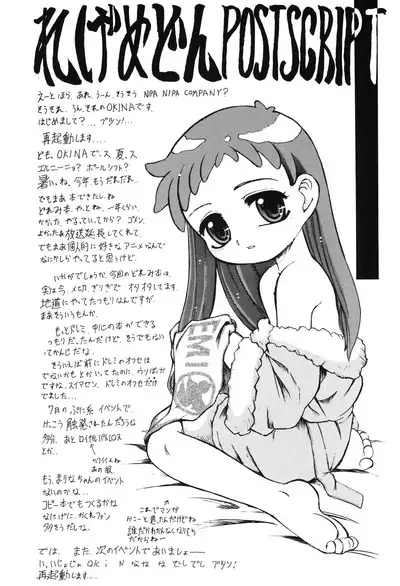 れげめどん POSTSCRIPT
えーと ほら、あれ、うーん、そうそう NIPA NIPA COMPANY?
うん、それのOKINAです。
はじめまして?...プツン!
再起動します....
ども、OKINAで、ス、夏、ス
エルニーニョ? ポールシフト?
暑い、ね、今年、もうだれだれ...
でもまあ本できたしね
どれみ本、やっとね、一年くらい
かかった、やるっていってから? ゴメン
よかったあ放送延長してくれて、
でもまあ個人的に好きなアニメなんで
なにかしらやってると思うけど、
いかがでしょうか、今回のどれみ本は、
実は今、〆切、ぎりぎで オタオタしてます、
地道にやってたつもりなんですが、
まあそういうもんか、
もっとドレミ、中心の本ができる
つもりだったんだけど、そうでもない
ってかんじだな。
そういえば前にドレミのオフセ
でないかもとかいてたのに、ウリばか
ですね、スイマセン、ドレミのオフセだけ
でました...
7月のぷに系イベントで
けっこう触発されたんだろうな
多分、あと ロイヤルパトレーヌ
とか、
カワイイよね
あの服
もう、まりなちゃんのイベント
ないのかな...
コピー本でもつくるかな
なにげに、かくれファン
多そうだしな、
これでマンガ
かこーと思ったんだけどね
誰だかわかんなくなてる
だからねー
EMI
では、また、次のイベントであいましょー
い、いじょじょ OKiN なななでしでし プツン!
再起動します...